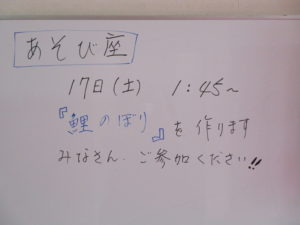 あそび座
17日(土) 1:45~
『鯉のぼり』を作ります
みなさん、ご参加ください!!